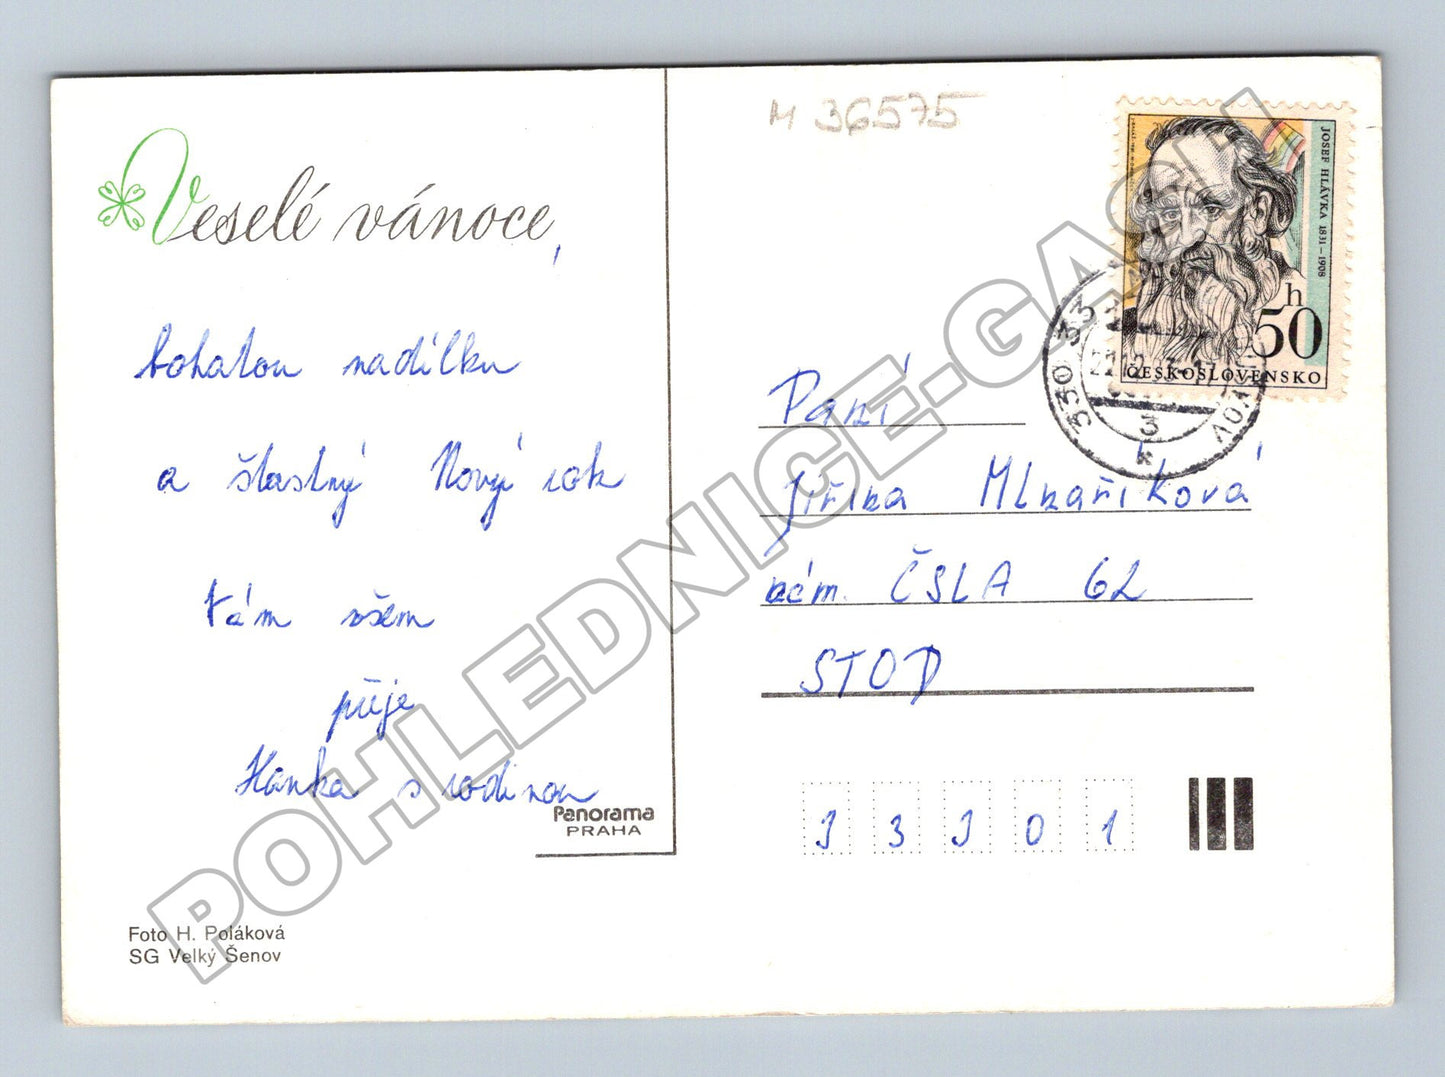 Veselé vánoce,
bohatou nadílku
a šťastný Nový rok
Vám všem
přeje
Hanka s rodinou
Panorama
PRAHA
Foto H. Poláková
SG Velký Šenov
M 36575
JOSEF HLÁVKA 1831–1908
50 h
ČESKOSLOVENSKO
330 33
3
Paní
Jiřina Mlnaříková
nám. ČSLA 62
STOD
33301
POHLEDNICE-GASH